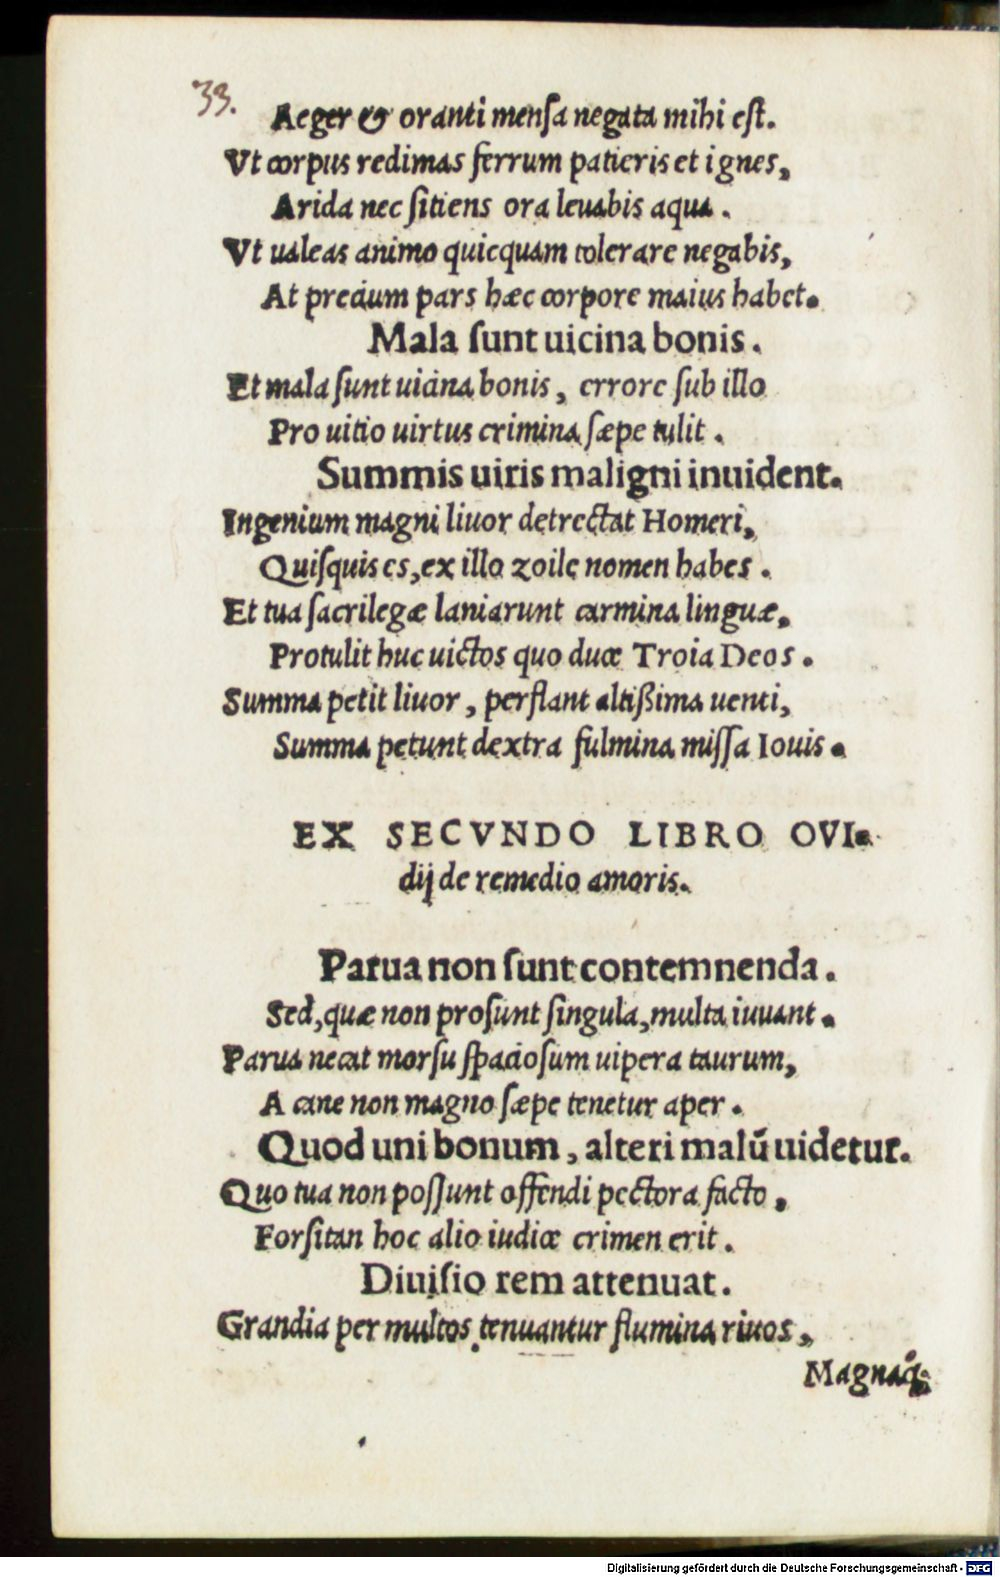 33.
Aeger & oranti mensa negata mihi est.
Vt corpus redimas ferrum patieris et ignes,
Arida nec sitiens ora leuabis aqua.
Vt ualeas animo quicquam tolerare negabis,
At precium pars hæc corpore maius habet.
Mala sunt uicina bonis.
Et mala sunt uicina bonis, errore sub illo
Pro uitio uirtus crimina sæpe tulit.
Summis uiris maligni inuident.
Ingenium magni liuor detrectat Homeri,
Quisquis es, ex illo zoile nomen habes.
Et tua sacrilegæ laniarunt carmina linguæ,
Protulit huc uictos quo duce Troia Deos.
Summa petit liuor, perflant altissima uenti,
Summa petunt dextra fulmina missa Iouis.
EX SECVNDO LIBRO OVI-
dij de remedio amoris.
Parua non sunt contemnenda.
Sed, quæ non prosunt singula, multa iuuant.
Parua necat morsu spaciosum uipera taurum,
A cane non magno sæpe tenetur aper.
Quod uni bonum, alteri malū uidetur.
Quo tua non possunt offendi pectora facto,
Forsitan hoc alio iudice crimen erit.
Diuisio rem attenuat.
Grandia per multos tenuantur flumina riuos,
Magnaq́;
Digitalisierung gefördert durch die Deutsche Forschungsgemeinschaft - DFG